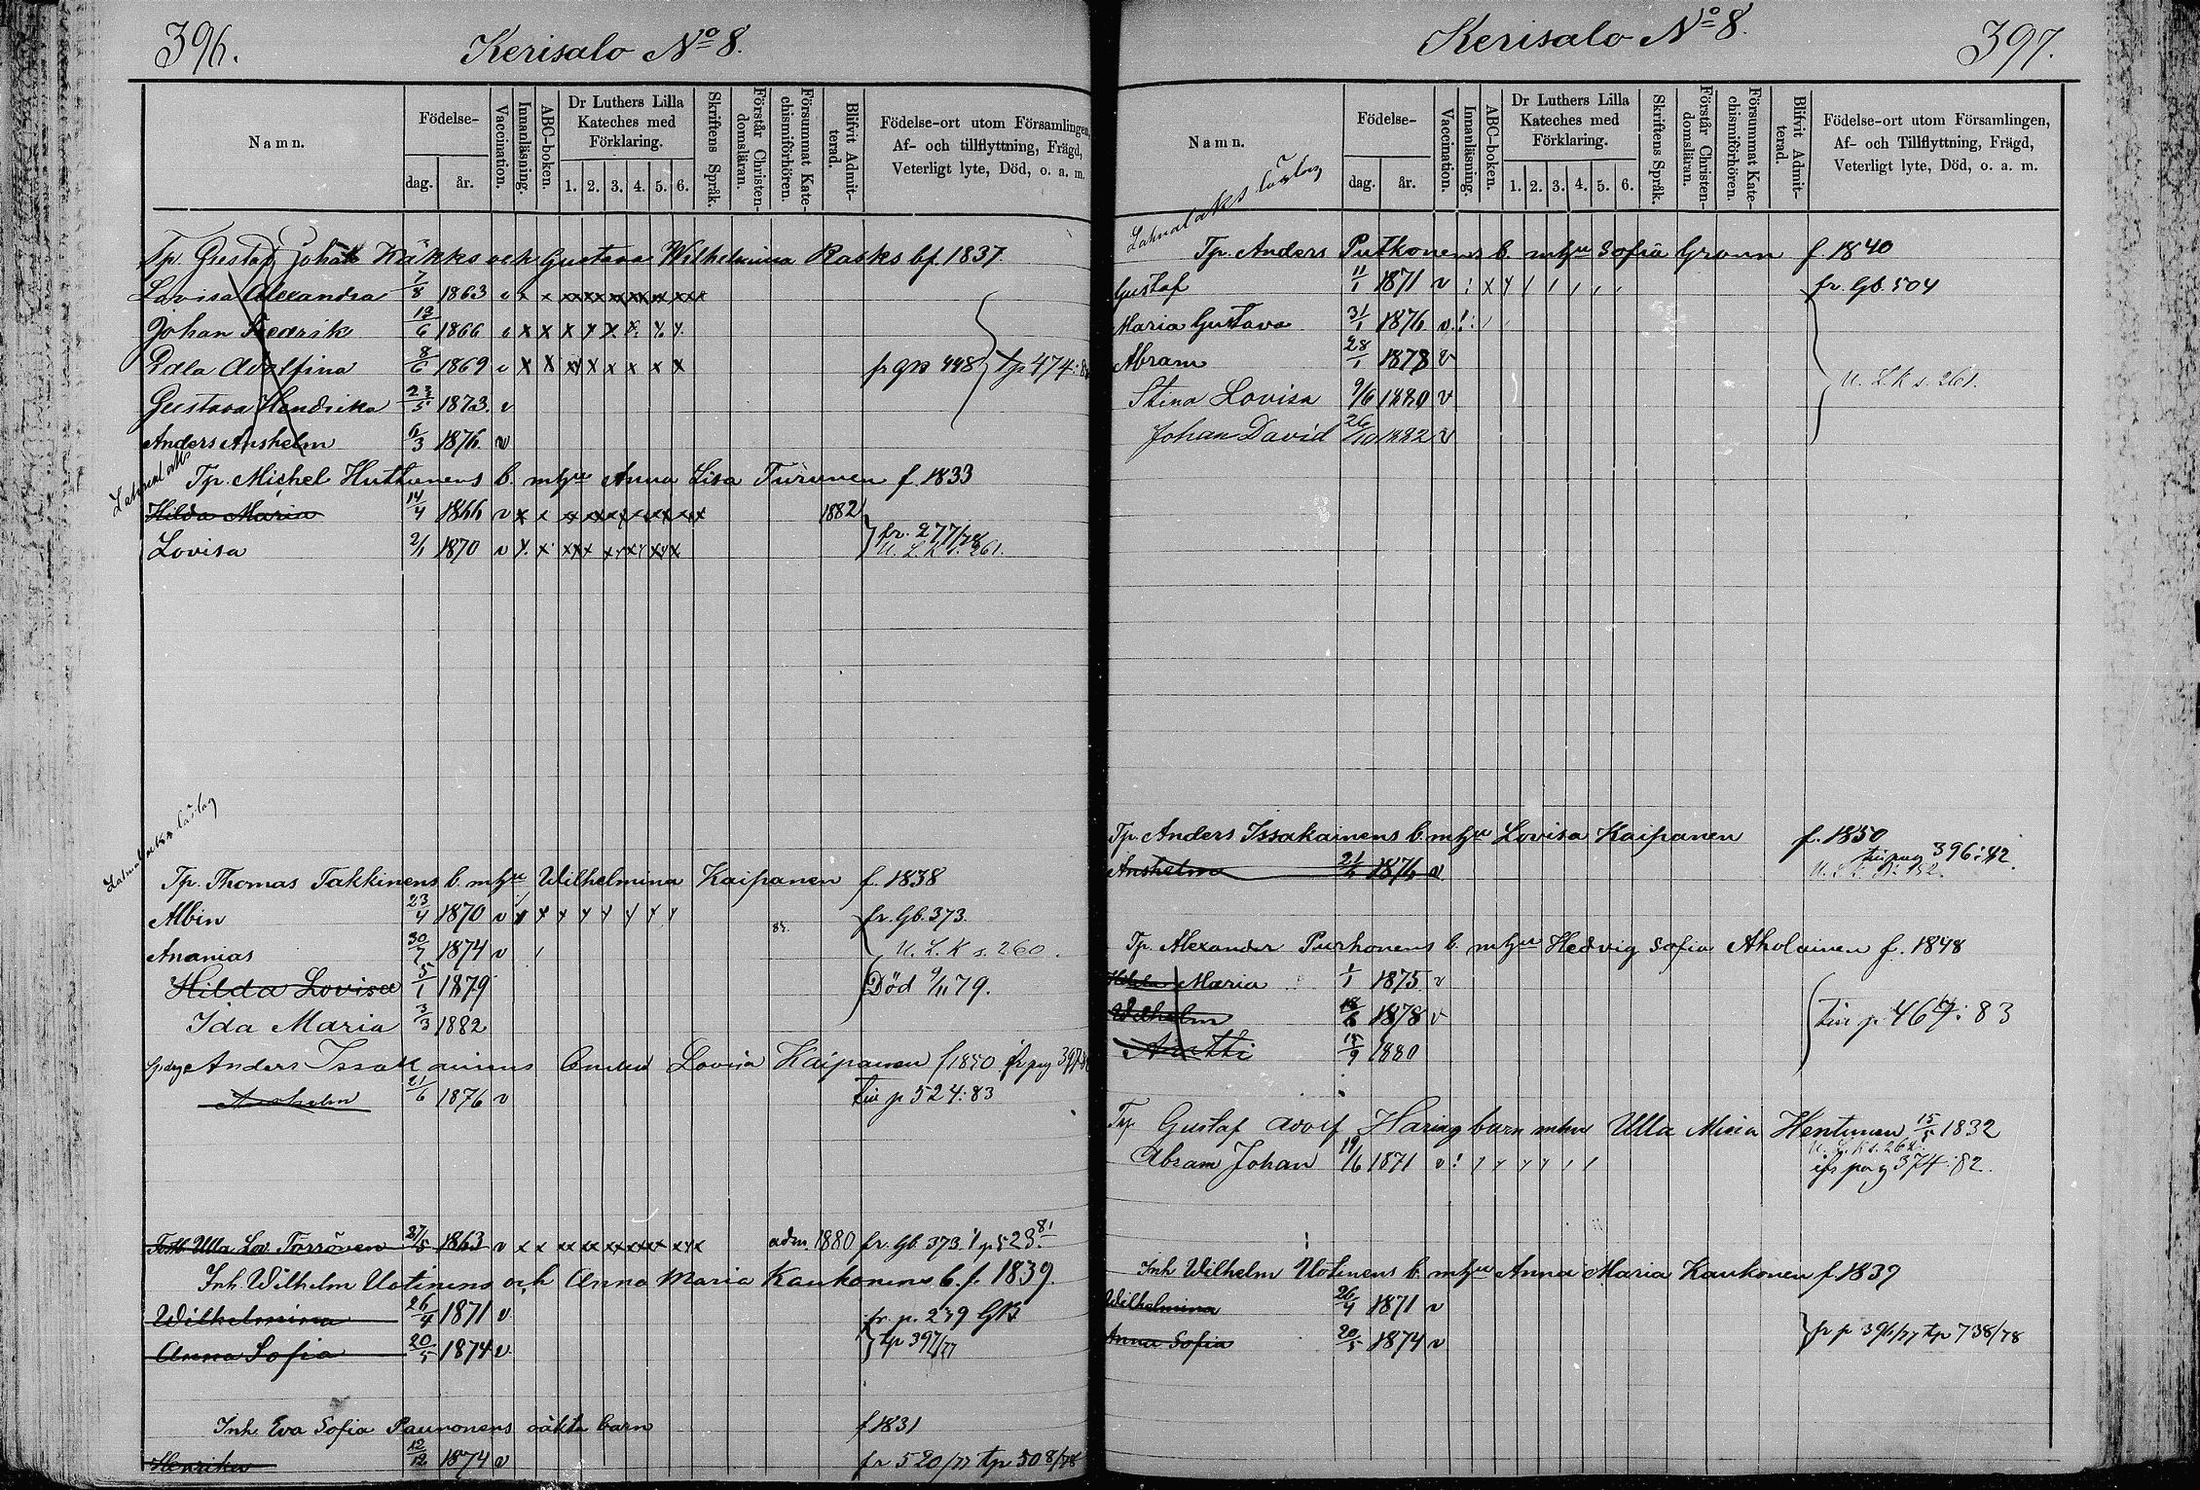 396.
Kerisalo No 8.
Namn.
Födelse-
dag.
år.
Vaccination.
Innanläsning.
ABC-boken.
Dr Luthers Lilla Kateches med Förklaring.
1. 2. 3. 4. 5. 6.
Skriftens Språk.
Förstår Christendomsläran.
Försummat Katechismiförhören.
Blifvit Admitterad.
Födelse-ort utom Församlingen,
Af- och tillflyttning, Frägd,
Veterligt lyte, Död, o. a. m.
Tp. Gustaf Johan Räkks och Gustava Wilhelmina Rasks b f. 1837.
Lovisa Alexandra 7/8 1863 v x x
Johan Fredrik 12/6 1866 v x x x x x x x x
Edla Adolfina 8/6 1869 v x x x x x x x x fr gb 448 tp 474:
Gustava Hendrika 23/5 1873. v
Anders Anshelm 6/3 1876. v
Tp. Michel Huttunens b. m hu Anna Lisa Turunen f. 1833
Hilda Maria 14/4 1866 v x x 1882
Lovisa 2/1 1870 v x x fr. 277/78
U. L. K s. 261.
Tp. Thomas Takkinens b. m hu Wilhelmina Kaipanen f. 1838
Albin 23/4 1870 v fr. Gb. 373.
Ananias 30/7 1874 v U. L. K s. 260.
Hilda Lovisa 5/1 1879 Död 9/11 79.
Ida Maria 3/3 1882
Anders Issakainens Lovisa Kaipanen f 1850 fr pag 397
Anshelm 21/6 1876 v tir p 524:83
Ulla Lov. Torrönen 27/5 1863 v x x adm. 1880 fr. Gb. 373. p 523. 81
Inh Wilhelm Uotinens och Anna Maria Kaukonens b. f. 1839.
Wilhelmina 26/4 1871 v fr. p. 239 GB
Anna Sofia 20/5 1874 v. tp 397/77
Inh Eva Sofia Paunonens oäkta barn f 1831
Henrika 12/12 1874 v fr 520/77 tp 508/78
Kerisalo No 8.
397.
Namn.
Födelse-
dag.
år.
Vaccination.
Innanläsning.
ABC-boken.
Dr Luthers Lilla Kateches med Förklaring.
1. 2. 3. 4. 5. 6.
Skriftens Språk.
Förstår Christendomsläran.
Försummat Katechismiförhören.
Blifvit Admitterad.
Födelse-ort utom Församlingen,
Af- och Tillflyttning, Frägd,
Veterligt lyte, Död, o. a. m.
Lahnalaks läslag
Tp. Anders Putkonens b. m hu Sofia Gronn f 1840
Gustaf 11/1 1871 v fr. Gb. 504
Maria Gustava 31/1 1876 v
Abram 28/1 1878 v
Stina Lovisa 9/6 1880 v U. L. K s. 261.
Johan David 26/10 1882 v
Tp. Anders Issakainens b. m hu Lovisa Kaipanen f. 1850
Anshelm 21/6 1876 v tir pag 396:82
Tp. Alexander Purhonens b. m hu Hedvig Sofia Aholainen f. 1848
Hilda Maria 1/1 1875 v
Wilhelm 18/6 1878 v tir p. 467:83
Antti 15/9 1880
Tp. Gustaf Adolf Haring barn m hu Ulla Maria Hentunen 15/5 1832
U. L. K s. 262
Abram Johan 19/6 1871 v pag 374:82.
Inh Wilhelm Uotinens b. m hu Anna Maria Kaukonen f 1839
Wilhelmina 26/4 1871 v
Anna Sofia 20/5 1874 v fr p 396/77 tp 738/78